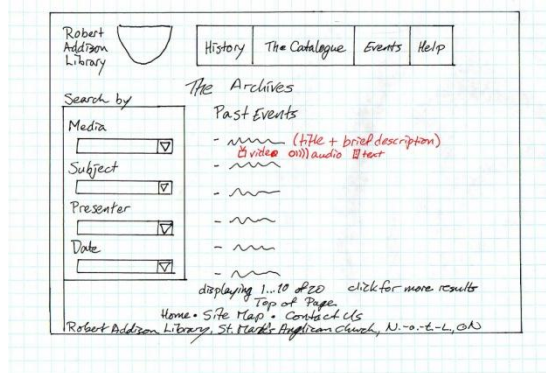 Robert
Addison
Library
History The Catalogue Events Help
The Archives
Search by
Past Events
Media
(title + brief description)
video audio text
Subject
Presenter
Date
displaying 1...10 of 20 click for more results
Top of Page
Home • Site Map • Contact Us
Robert Addison Library, St. Mark's Anglican Church, N.-o.-t.-L, ON